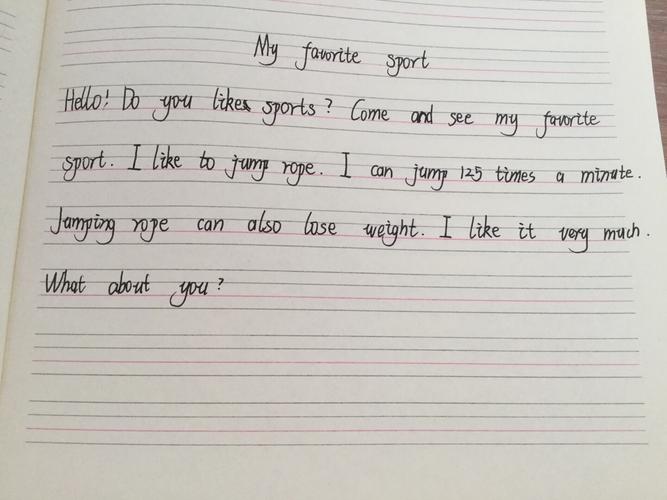 My favorite sport
Hello! Do you likes sports? Come and see my favorite
sport. I like to jump rope. I can jump 125 times a minute.
Jumping rope can also lose weight. I like it very much.
What about you?